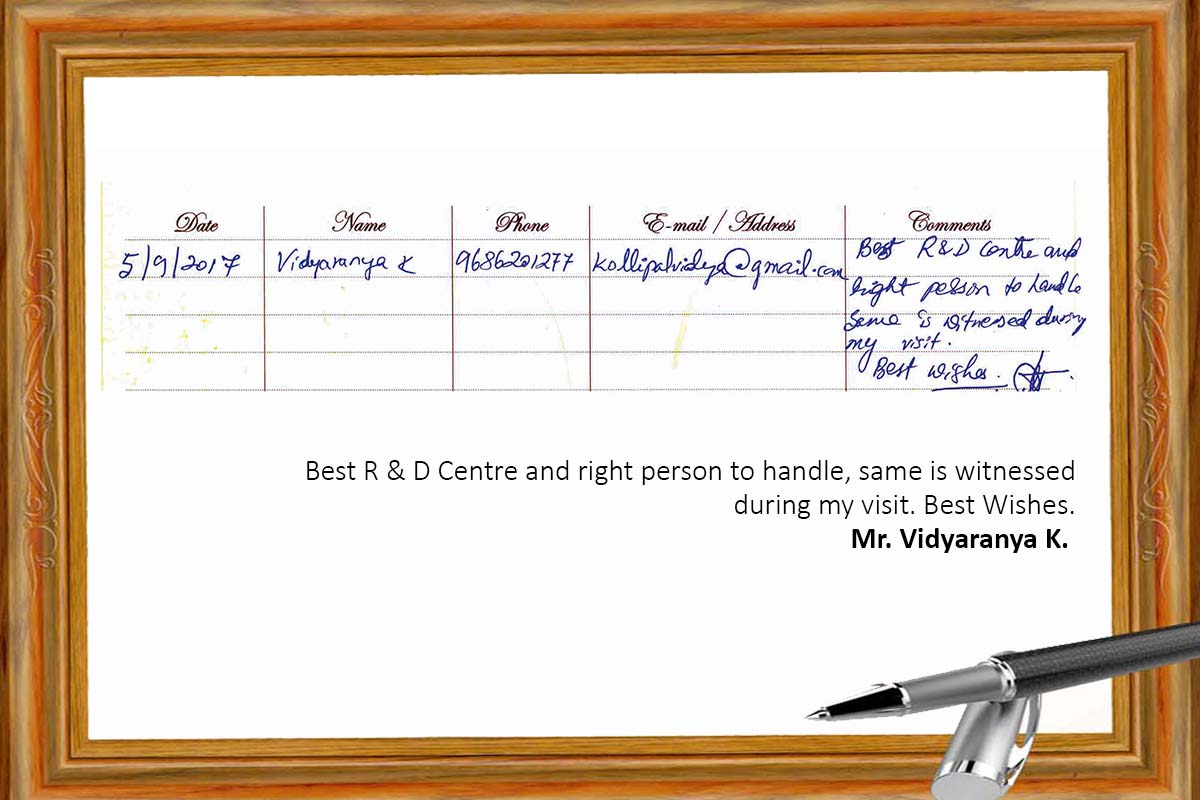 Date Name Phone E-mail / Address Comments
5/9/2017 Vidyaranya K 9686201277 kollipalvidya@gmail.com Best R&D Centre and
right person to handle
Same is witnessed during
my visit.
Best wishes.
Best R & D Centre and right person to handle, same is witnessed
during my visit. Best Wishes.
Mr. Vidyaranya K.